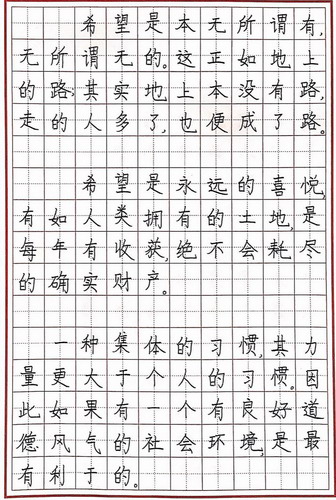 希望是本无所谓有,
无所谓无的。这正如地上
的路;其实地上本没有路,
走的人多了,也便成了路。
希望是永远的喜悦,
有如人类拥有的土地,是
每年有收获,绝不会耗尽
的确实财产。
一种集体的习惯,其力
量更大于个人的习惯。因
此如果有一个有良好道
德风气的社会环境,是最
有利于的。